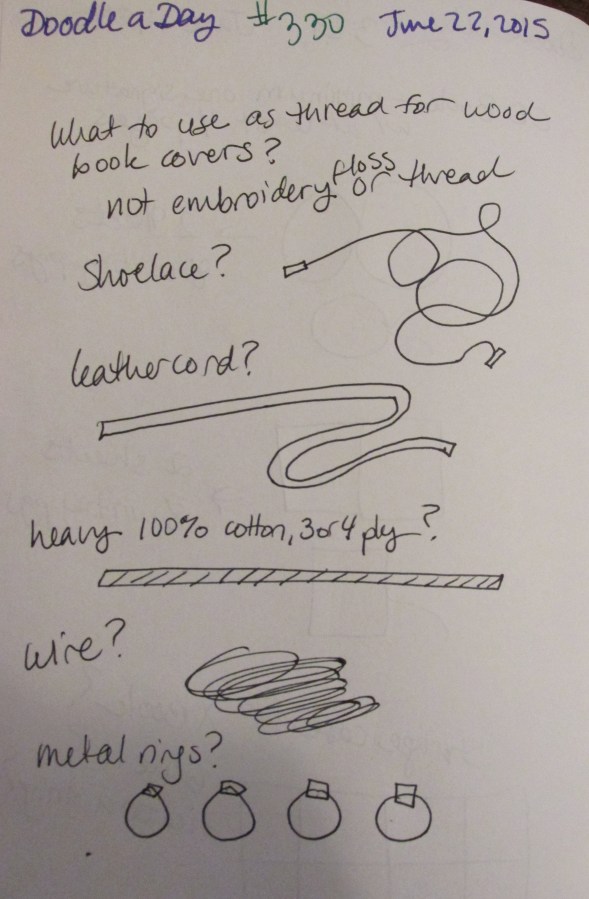 Doodle a Day #330 June 22, 2015
What to use as thread for wood
book covers?
not embroidery floss or thread
Shoelace?
leather cord?
heavy 100% cotton, 3 or 4 ply?
wire?
metal rings?